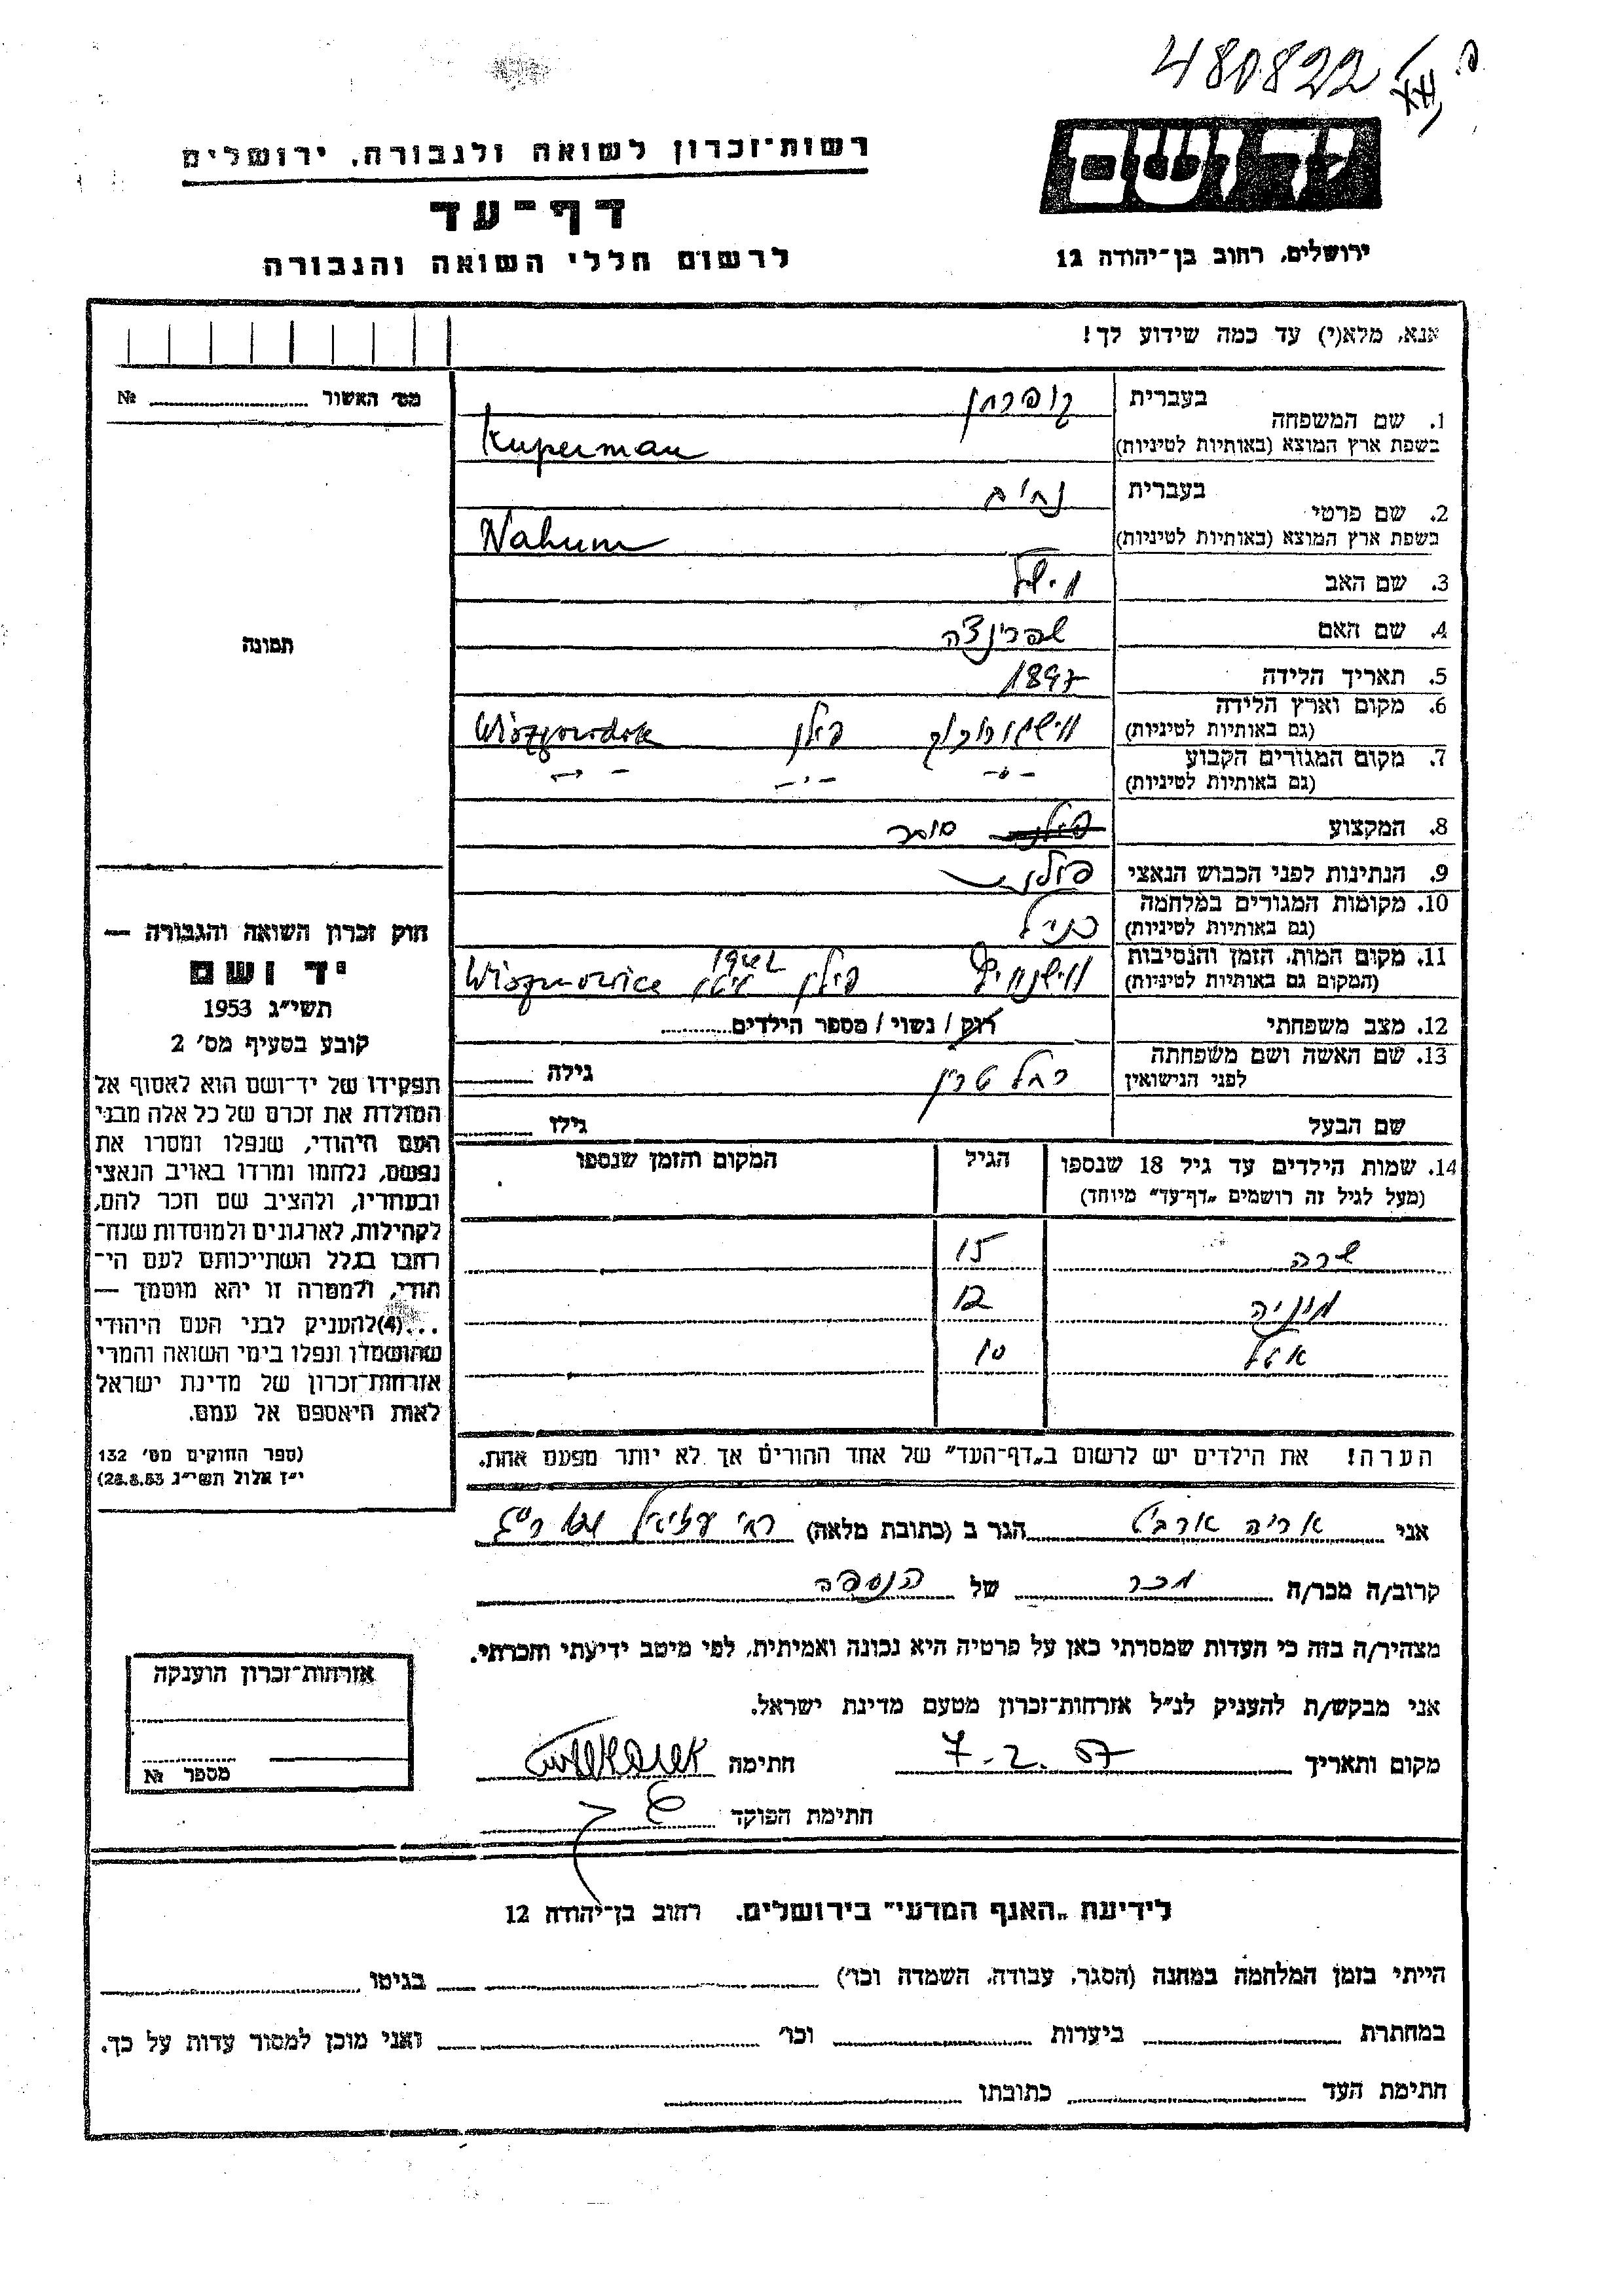 480822
רשות־זכרון לשואה ולגבורה, ירושלים
דף־עד
לרשום חללי השואה והגבורה
יד ושם
ירושלים, רחוב בן־יהודה 12
אנא, מלא(י) עד כמה שידוע לך!
מס׳ האשור № 
1. שם המשפחה
בעברית קופרמן
בשפת ארץ המוצא (באותיות לטיניות) Kuperman
2. שם פרטי
בעברית נחום
בשפת ארץ המוצא (באותיות לטיניות) Nahum
3. שם האב
4. שם האם שפרינצה
5. תאריך הלידה 1897
6. מקום וארץ הלידה
(גם באותיות לטיניות) פולין Wiszgorodok
7. מקום המגורים הקבוע
(גם באותיות לטיניות) -"- -"- -"-
8. המקצוע סוחר
9. הנתינות לפני הכבוש הנאצי פולני
10. מקומות המגורים במלחמה
(גם באותיות לטיניות) כנ״ל
11. מקום המות, הזמן והנסיבות
(המקום גם באותיות לטיניות) פולין 1942
12. מצב משפחתי רווק / נשוי / מספר הילדים
13. שם האשה ושם משפחתה
לפני הנישואין רחל גילה
שם הבעל גילו
14. שמות הילדים עד גיל 18 שנספו הגיל המקום והזמן שנספו
(מעל לגיל זה רושמים „דף־עד״ מיוחד)
שרה 15
12
10
הערה! את הילדים יש לרשום ב„דף־העד״ של אחד ההורים אך לא יותר מפעם אחת.
תמונה
חוק זכרון השואה והגבורה —
יד ושם
תשי״ג 1953
קובע בסעיף מס׳ 2
תפקידו של יד־ושם הוא לאסוף אל
המולדת את זכרם של כל אלה מבני
העם היהודי, שנפלו ומסרו את
נפשם, נלחמו ומרדו באויב הנאצי
ובעוזריו, ולהציב שם וזכר להם,
לקהילות, לארגונים ולמוסדות שנח־
רבו בגלל השתייכותם לעם הי־
הודי, ולמטרה זו יהא מוסמך —
...(4)להעניק לבני העם היהודי
שהושמדו ונפלו בימי השואה והמרי
אזרחות־זכרון של מדינת ישראל
לאות היאספם אל עמם.
(ספר החוקים מס׳ 132
י״ז אלול תשי״ג 28.8.53)
אני אריה הגר ב (כתובת מלאה)
קרוב/ה מכר/ה מכר של הנספה
מצהיר/ה בזה כי העדות שמסרתי כאן על פרטיה היא נכונה ואמיתית, לפי מיטב ידיעתי והכרתי.
אני מבקש/ת להעניק לנ״ל אזרחות־זכרון מטעם מדינת ישראל.
מקום ותאריך 7.2.57 חתימה
חתימת הפוקד
אזרחות־זכרון הוענקה
מספר №
לידיעת „האגף המדעי״ בירושלים, רחוב בן־יהודה 12
הייתי בזמן המלחמה במחנה (הסגר, עבודה, השמדה וכו׳) בגיטו
במחתרת ביערות וכו׳ ואני מוכן למסור עדות על כך.
חתימת העד כתובתו